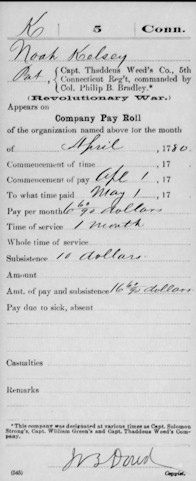 K 5 Conn.
Noah Kelsey
Pvt., { Capt. Thaddeus Weed's Co., 5th
Connecticut Reg't, commanded by
Col. Philip B. Bradley.*
(Revolutionary War.)
Appears on
Company Pay Roll
of the organization named above for the month
of April, 1780.
Commencement of time, 17
Commencement of pay Apl 1, 17
To what time paid May 1, 17
Pay per month 6 60/90 dollars
Time of service 1 month
Whole time of service
Subsistence 10 dollars.
Amount
Amt. of pay and subsistence 16 60/90 dollars
Pay due to sick, absent
Casualties
Remarks
*This company was designated at various times as Capt. Solomon
Strong's, Capt. William Green's and Capt. Thaddeus Weed's Com-
pany.
Dowd
(545) Copyist.